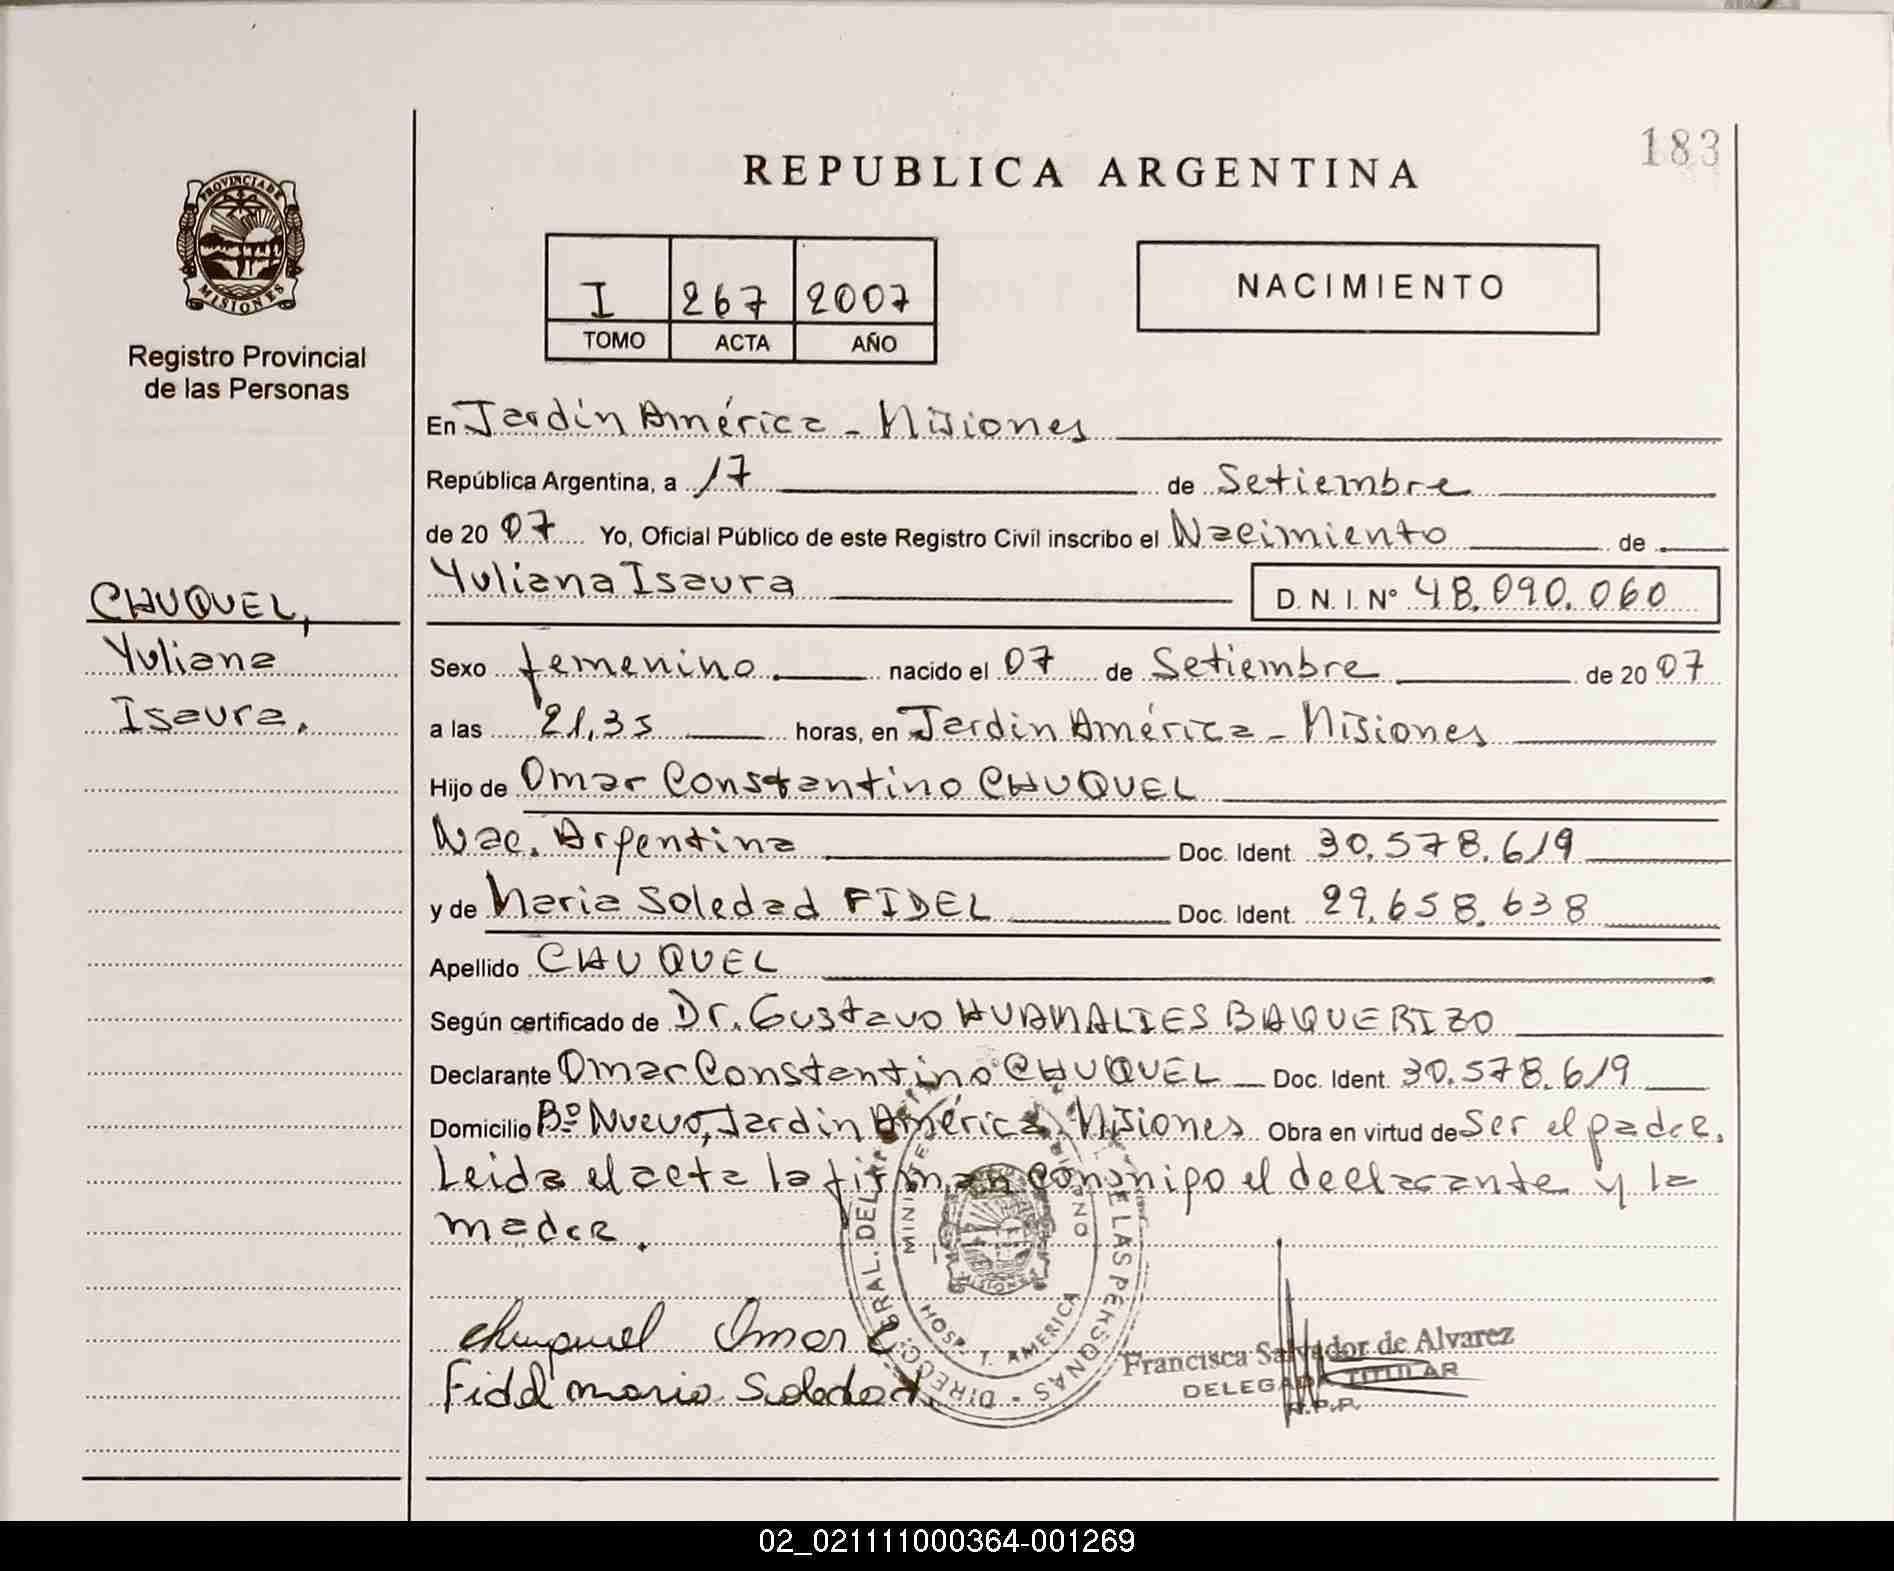 183
REPUBLICA ARGENTINA
PROVINCIA DE
MISIONES
Registro Provincial
de las Personas
I 267 2007
TOMO ACTA AÑO
NACIMIENTO
En Jardín América - Misiones
República Argentina, a 17 de Setiembre
de 20 07 Yo, Oficial Público de este Registro Civil inscribo el Nacimiento de
Yuliana Isaura D. N. I. Nº 48.090.060
CHUQUEL,
Yuliana
Isaura.
Sexo femenino nacido el 07 de Setiembre de 20 07
a las 21,35 horas, en Jardín América - Misiones
Hijo de Omar Constantino CHUQUEL
Nac. Argentina Doc. Ident. 30.578.619
y de Maria Soledad FIDEL Doc. Ident. 29.658.638
Apellido CHUQUEL
Según certificado de Dr. Gustavo HUAMALIES BAQUERIZO
Declarante Omar Constantino CHUQUEL Doc. Ident. 30.578.619
Domicilio Bº Nuevo, Jardín América Misiones Obra en virtud de Ser el padre.
Leida el acta la firman conmigo el declarante y la
madre.
Chuquel Omar C
Fidel maria Soledad
HOSP. J. AMERICA
LAS PERSONAS
Francisca Salvador de Alvarez
DELEGADA TITULAR
R.P.P.
02_021111000364-001269